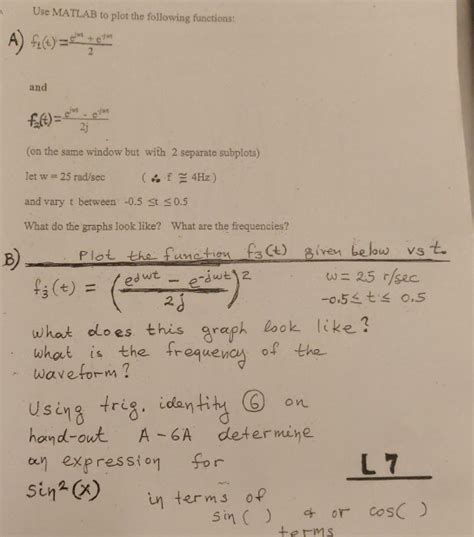 Use MATLAB to plot the following functions:
A) f₁(t) = (e^jwt + e^-jwt)/2
and
f₂(t) = (e^jwt - e^-jwt)/2j
(on the same window but with 2 separate subplots)
let w = 25 rad/sec (∴ f ≅ 4Hz)
and vary t between -0.5 ≤t ≤0.5
What do the graphs look like? What are the frequencies?
B) Plot the function f₃(t) given below vs t.
f₃(t) = ((e^jwt - e^-jwt)/2j)² w = 25 r/sec
-0.5≤ t ≤ 0.5
What does this graph look like?
What is the frequency of the
waveform?
Using trig. identity ⑥ on
hand-out A-6A determine
an expression for L7
sin²(x) in terms of
sin( ) & or cos( )
terms